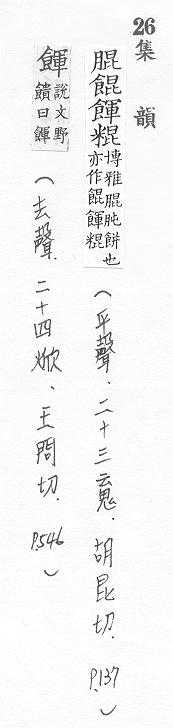 26 集韻
腽餛餫粯博雅腽肫餅也亦作餛餫粯(平聲.二十三䰟.胡昆切.P.137)
餫說文野饋曰餫(去聲.二十四焮、王問切.P.546)